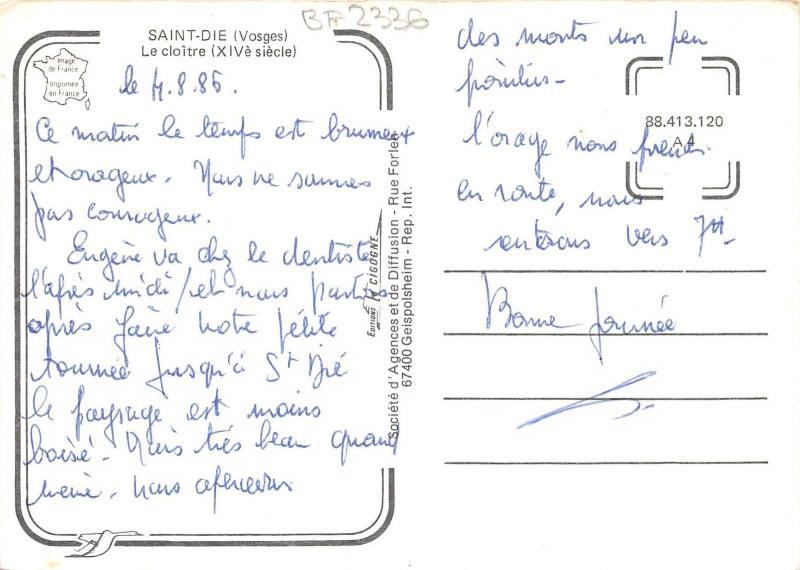 BF 2336
SAINT-DIE (Vosges)
Le cloître (XIVè siècle)
Image
de France
Imprimée
en France
le 4.8.86.
Ce matin le temps est brumeux
et orageux. Nous ne sommes
pas courageux.
Eugène va chez le dentiste
l'après midi / et nous partons
après faire notre petite
tournée jusqu'à St Dié
le paysage est moins
boisé. Mais très beau quand
même. nous apercevons
EDITIONS CIGOGNE
Société d'Agences et de Diffusion - Rue Forlen
67400 Geispolsheim - Rep. Int.
des monts un peu
pointus -
88.413.120
A 4
l'orage nous prends
en route, nous
rentrons vers 7H-
Bonne journée